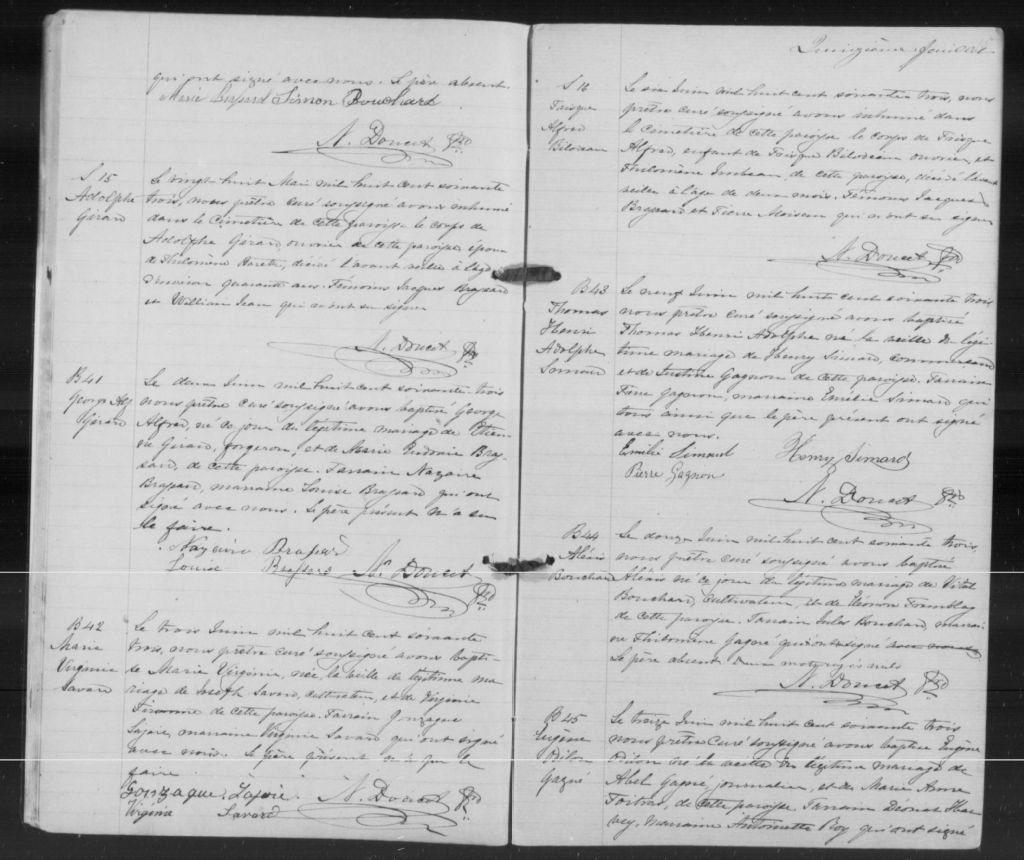 qui ont signé avec nous. Le père absent.
Marie Simon Bouchard
N. Doucet Ptre
S 15
Adolphe
Girard
Le vingt huit Mai mil huit cent soixante
trois, nous prêtre curé soussigné avons inhumé
dans le Cimetière de cette paroisse le corps de
Adolphe Girard, ouvrier de cette paroisse époux
de Philomène décédé l'avant veille à l'âge
d'environ quarante ans. Témoins Jacques Brassard
et William Jean qui n'ont su signer
N. Doucet Ptre
B 41
George Alf
Girard
Le deux Juin mil huit cent soixante trois
nous prêtre curé soussigné avons baptisé George
Alfred, né ce jour du légitime mariage de Etien-
ne Girard, forgeron, et de Marie Bras-
sard, de cette paroisse. Parrain Nazaire
Brassard, marraine Louise Brassard qui ont
signé avec nous. Le père présent n'a su
le faire.
Nazaire Brassard
Louise Brassard N. Doucet Ptre
B 42
Marie
Virginie
Savard
Le trois Juin mil huit cent soixante
trois, nous prêtre curé soussigné avons bapti-
sé Marie Virginie, née la veille de légitime ma-
riage de Joseph Savard, cultivateur, et de Virginie
de cette paroisse. Parrain Gonzague
Lajoie, marraine Virginie Savard qui ont signé
avec nous. Le père présent n'a pu le
faire.
Gonzague Lajoie
Virginie Savard N. Doucet Ptre
Quinzième feuillet
S 16
Taisque
Alfred
Bilodeau
Le six Juin mil huit cent soixante trois, nous
prêtre curé soussigné avons inhumé dans
le cimetière de cette paroisse le corps de
Alfred, enfant de Bilodeau ouvrier, et
Philomène de cette paroisse, décédé l'avant
veille à l'âge de deux mois. Témoins Jacques
Brassard et Pierre qui n'ont su signer
N. Doucet Ptre
B 43
Thomas
Henri
Adolphe
Simard
Le neuf Juin mil huit cent soixante trois
nous prêtre curé soussigné avons baptisé
Thomas Henri Adolphe né la veille du légi-
time mariage de Henry Simard, commerçant
et de Justine Gagnon de cette paroisse. Parrain
Pierre Gagnon, marraine Emélie Simard qui
tous ainsi que le père présent ont signé
avec nous.
Emélie Simard Henry Simard
Pierre Gagnon
N. Doucet Ptre
B 44
Alexis
Bouchard
Le douze Juin mil huit cent soixante trois,
nous prêtre curé soussigné avons baptisé
Alexis né ce jour du légitime mariage de Vital
Bouchard, cultivateur, et de Eléonore Tremblay
de cette paroisse. Parrain Jules Bouchard, marrai-
ne Philomène Gagné qui n'ont signé avec nous
Le père absent. mots rayés nuls
N. Doucet Ptre
B 45
Eugène
Dion
Gagné
Le treize Juin mil huit cent soixante trois
nous prêtre curé soussigné avons baptisé Eugène
Dion né la veille du légitime mariage de
Abel Gagné, journalier, et de Marie Anne
Fortin, de cette paroisse. Parrain Har-
vey, Marraine Antoinette Roy qui ont signé